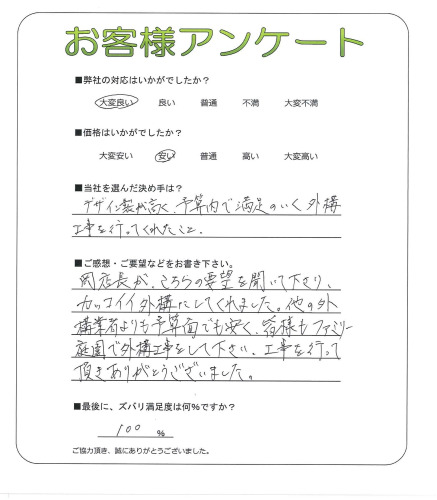 お客様アンケート
■弊社の対応はいかがでしたか？
大変良い 良い 普通 不満 大変不満
■価格はいかがでしたか？
大変安い 安い 普通 高い 大変高い
■当社を選んだ決め手は？
デザイン製が高く、予算内で満足のいく外構
工事を行ってくれたこと。
■ご感想・ご要望などをお書き下さい。
岡店長が、こちらの要望を聞いて下さり、
カッコイイ外構にしてくれました。他の外
構業者よりも予算面でも安く、皆様もファミリー
庭園で外構工事をして下さい。工事を行って
頂きありがとうございました。
■最後に、ズバリ満足度は何%ですか？
100 %
ご協力頂き、誠にありがとうございました。